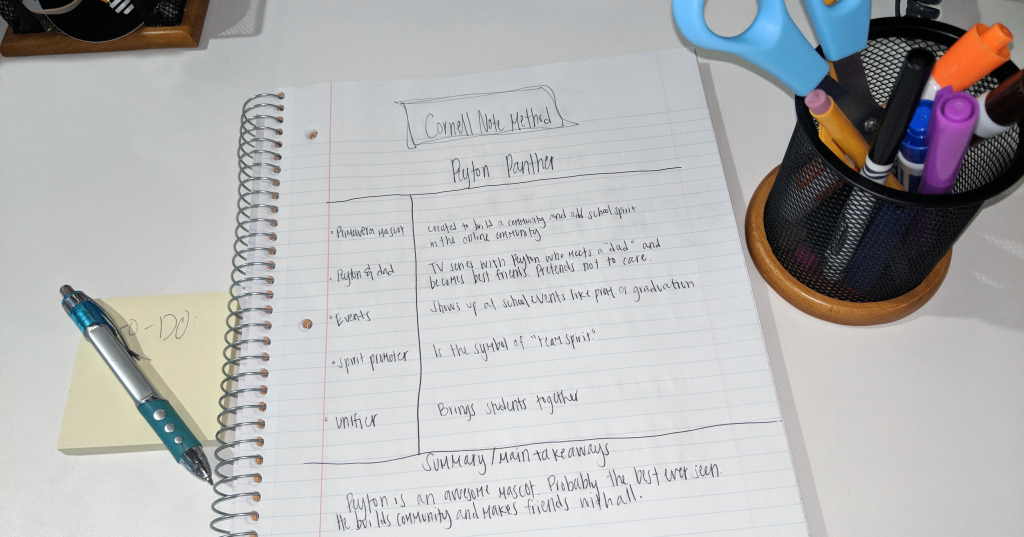 Cornell Note Method
Peyton Panther
• Primavera Mascot
created to build a community and add school spirit
in the online community
• Peyton & dad
TV series with Peyton who meets a "dad" and
becomes best friends. Pretends not to care.
• Events
Shows up at school events like prom or graduation
• Spirit promoter
Is the symbol of "team spirit"
• Unifier
Brings students together
Summary/Main takeaways
Peyton is an awesome mascot. Probably the best ever seen
He builds community and makes friends with all.
TO-DO: